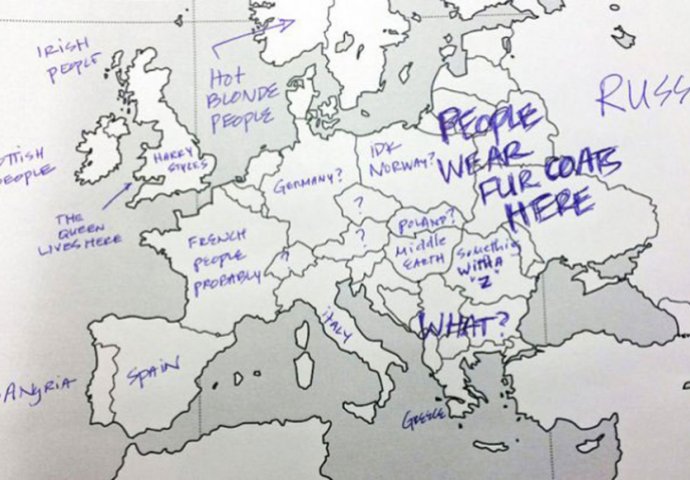 IRISH
PEOPLE
HOT
BLONDE
PEOPLE
RUSS
OTTISH
PEOPLE
HARRY
STYLES
THE
QUEEN
LIVES HERE
GERMANY?
IDK
NORWAY?
PEOPLE
WEAR
FUR COATS
HERE
?
POLAND?
?
FRENCH
PEOPLE
PROBABLY
?
Middle
EARTH
Something
WITH A
"Z"
ITALY
WHAT?
SPAIN
ANGRIA
GREECE